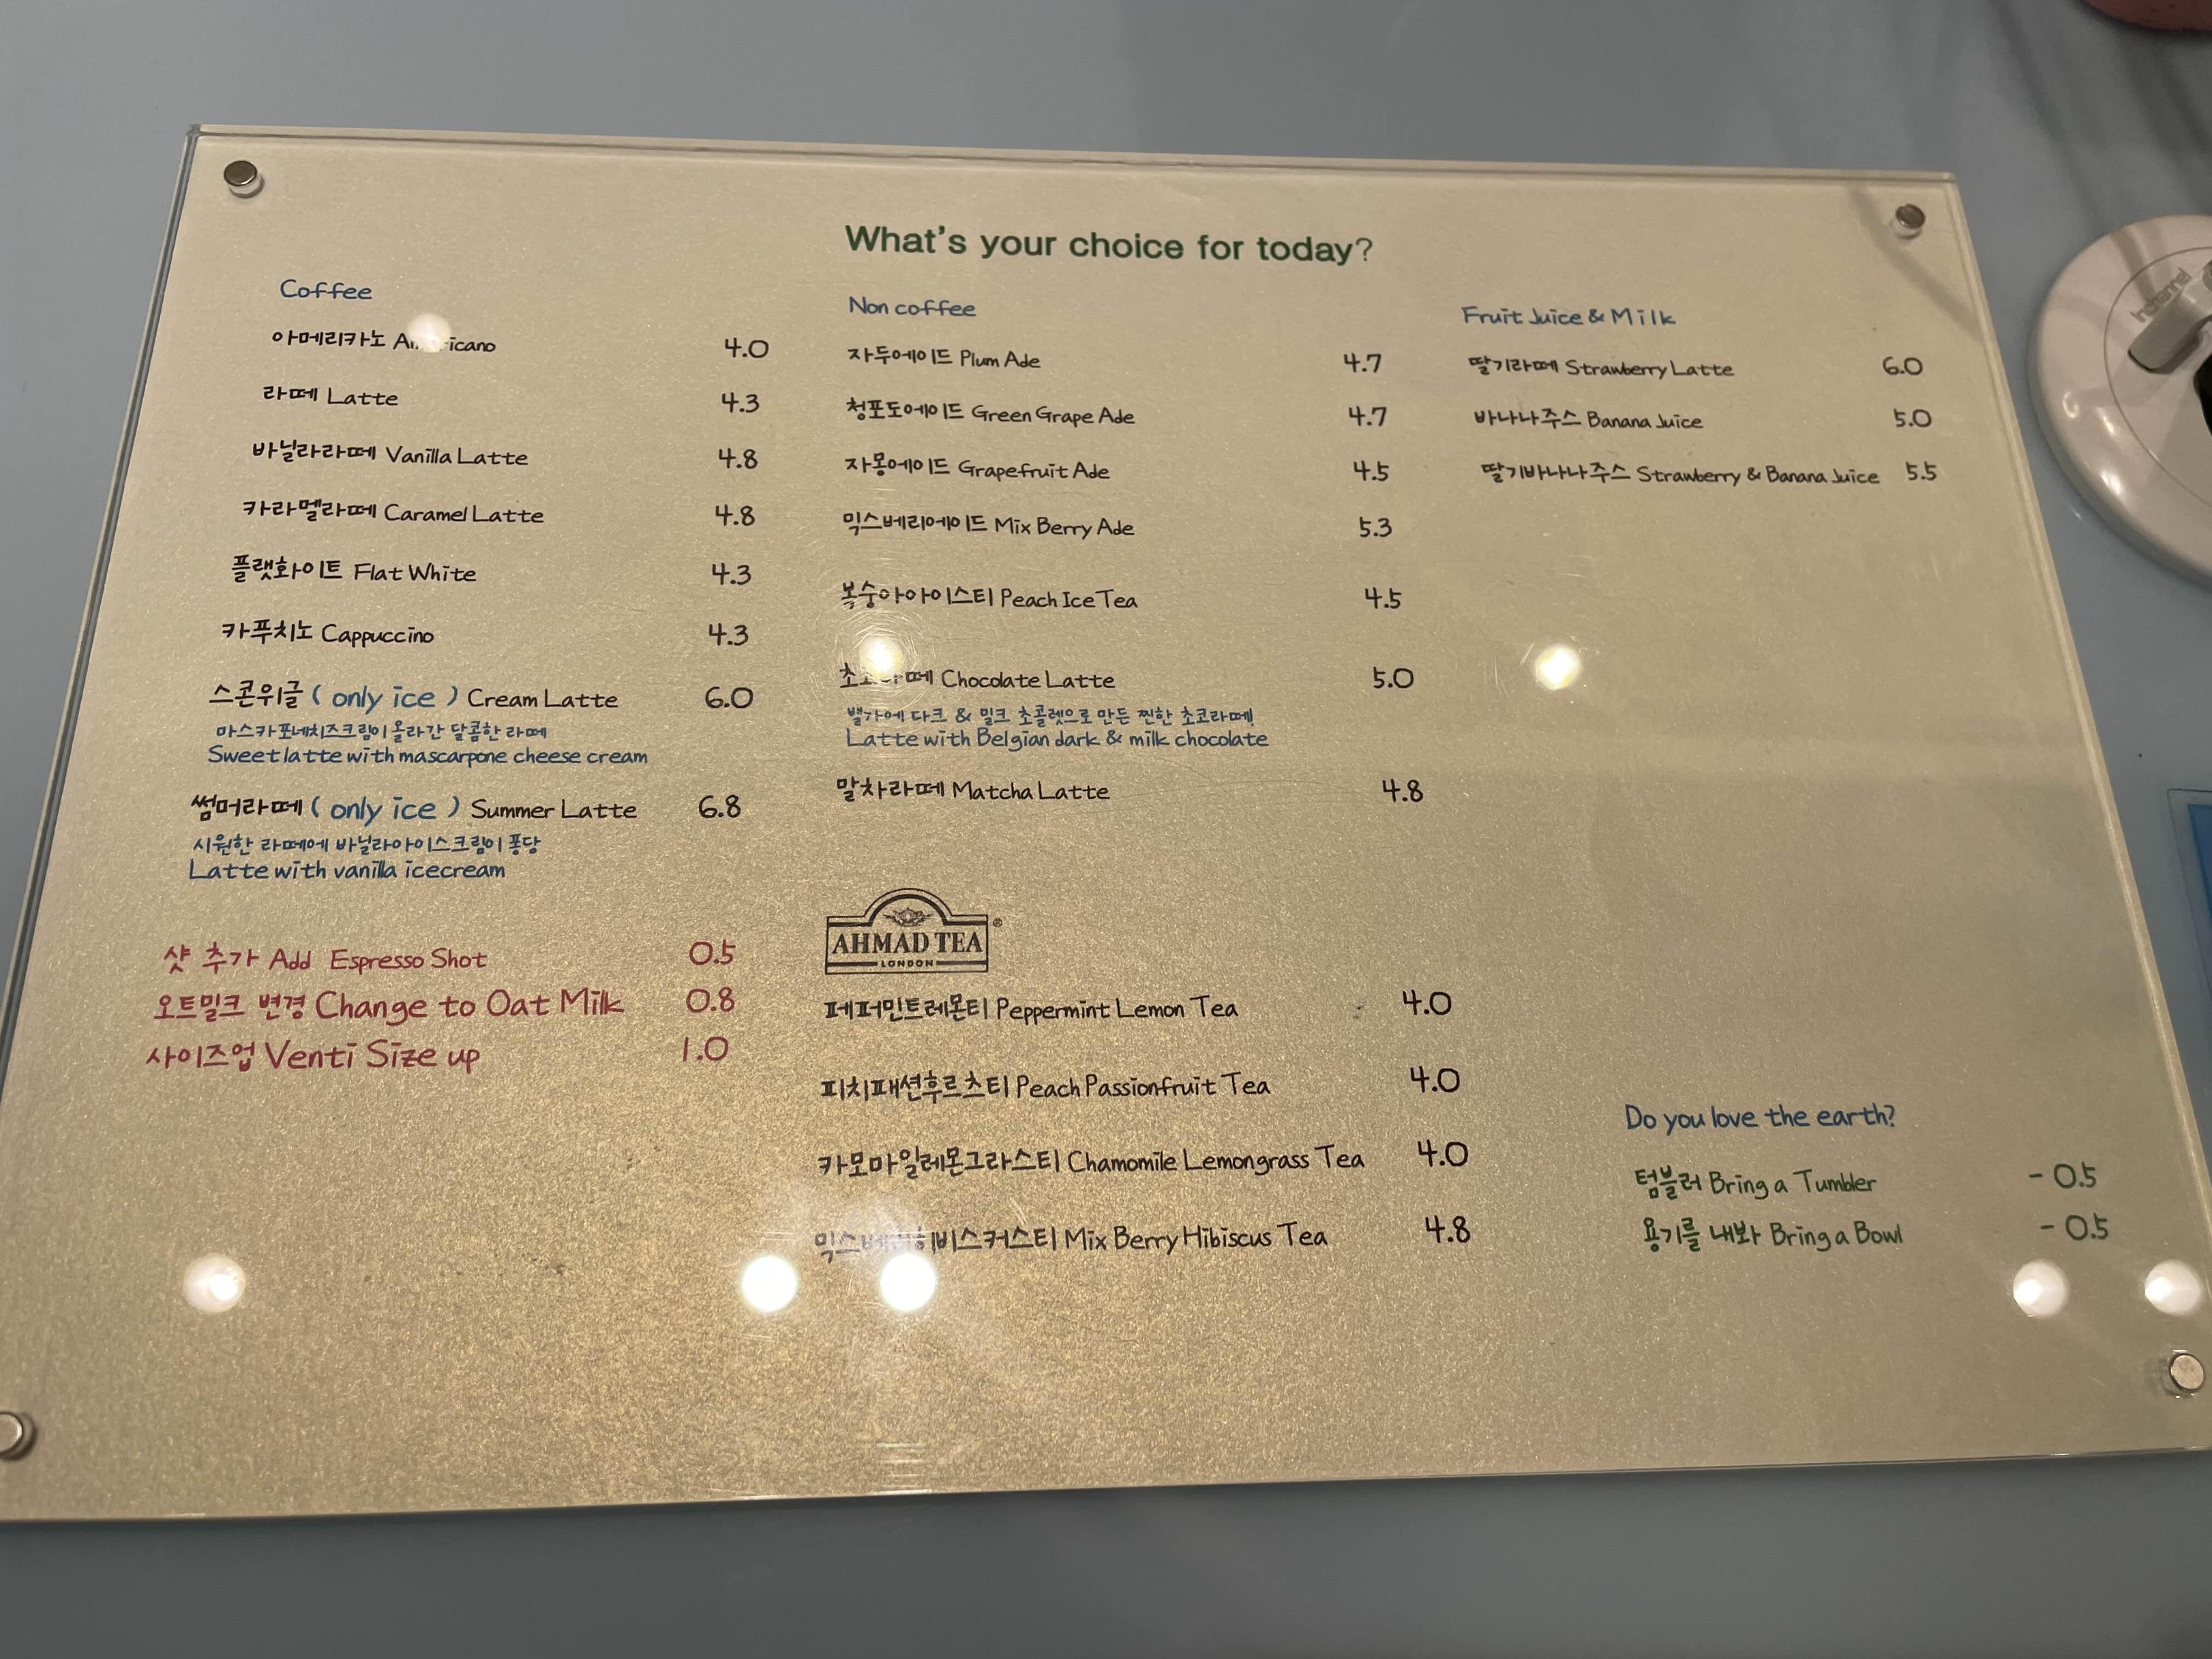 What's your choice for today?
Coffee
아메리카노 4.0
라떼 Latte 4.3
바닐라라떼 Vanilla Latte 4.8
카라멜라떼 Caramel Latte 4.8
플랫화이트 Flat White 4.3
카푸치노 Cappuccino 4.3
스콘위글 ( only ice ) Cream Latte 6.0
마스카포네치즈크림이 올라간 달콤한 라떼
Sweet latte with mascarpone cheese cream
썸머라떼 ( only ice ) Summer Latte 6.8
시원한 라떼에 바닐라아이스크림이 퐁당
Latte with vanilla icecream
샷 추가 Add Espresso Shot 0.5
오트밀크 변경 Change to Oat Milk 0.8
사이즈업 Venti Size up 1.0
Non coffee
자두에이드 Plum Ade 4.7
청포도에이드 Green Grape Ade 4.7
자몽에이드 Grapefruit Ade 4.5
믹스베리에이드 Mix Berry Ade 5.3
복숭아아이스티 Peach Ice Tea 4.5
Chocolate Latte 5.0
벨기에 다크 & 밀크 초콜렛으로 만든 찐한 초코라떼!
Latte with Belgian dark & milk chocolate
말차라떼 Matcha Latte 4.8
AHMAD TEA ®
LONDON
페퍼민트레몬티 Peppermint Lemon Tea 4.0
피치패션후르츠티 Peach Passionfruit Tea 4.0
카모마일레몬그라스티 Chamomile Lemongrass Tea 4.0
Mix Berry Hibiscus Tea 4.8
Fruit Juice & Milk
딸기라떼 Strawberry Latte 6.0
바나나주스 Banana Juice 5.0
딸기바나나주스 Strawberry & Banana Juice 5.5
Do you love the earth?
텀블러 Bring a Tumbler - 0.5
용기를 내봐 Bring a Bowl - 0.5